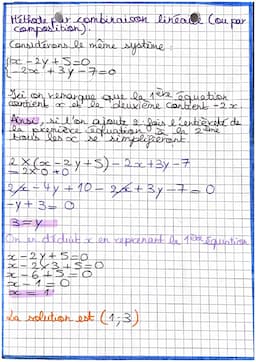 Méthode par combinaison linéaire (ou par
composition).
Considérons le même système :
x - 2y + 5 = 0
-2x + 3y - 7 = 0
Ici on remarque que la 1ère équation
contient x et la deuxième contient -2x.
Ainsi, si l'on ajoute 2 fois l'entièreté de
la première équation à la 2ème
tous les x se simplifieront
2 × (x - 2y + 5) - 2x + 3y - 7
= 2 × 0 + 0
2x - 4y + 10 - 2x + 3y - 7 = 0
-y + 3 = 0
3 = y
On en déduit x en reprenant la 1ère équation
x - 2y + 5 = 0
x - 2×3 + 5 = 0
x - 6 + 5 = 0
x - 1 = 0
x = 1
La solution est (1;3)